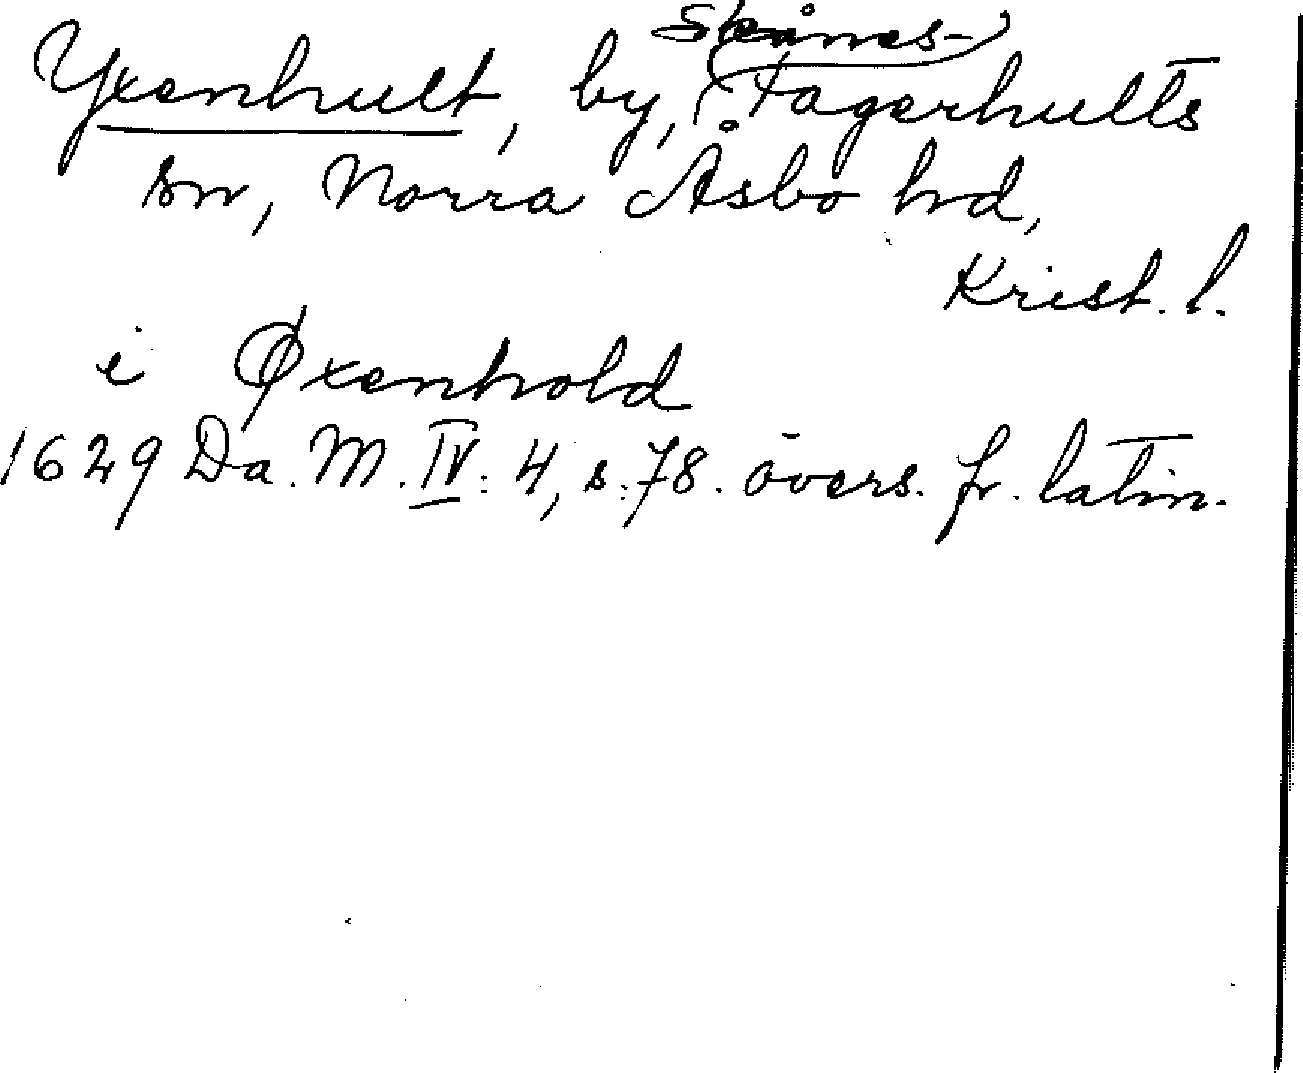 Yxenhult, by, Skånes-Fagerhults
sn, Norra Åsbo hrd,
Krist. l.
i Øxenhold
1629 Da. M. IV: 4, s. 78. övers. fr. latin.